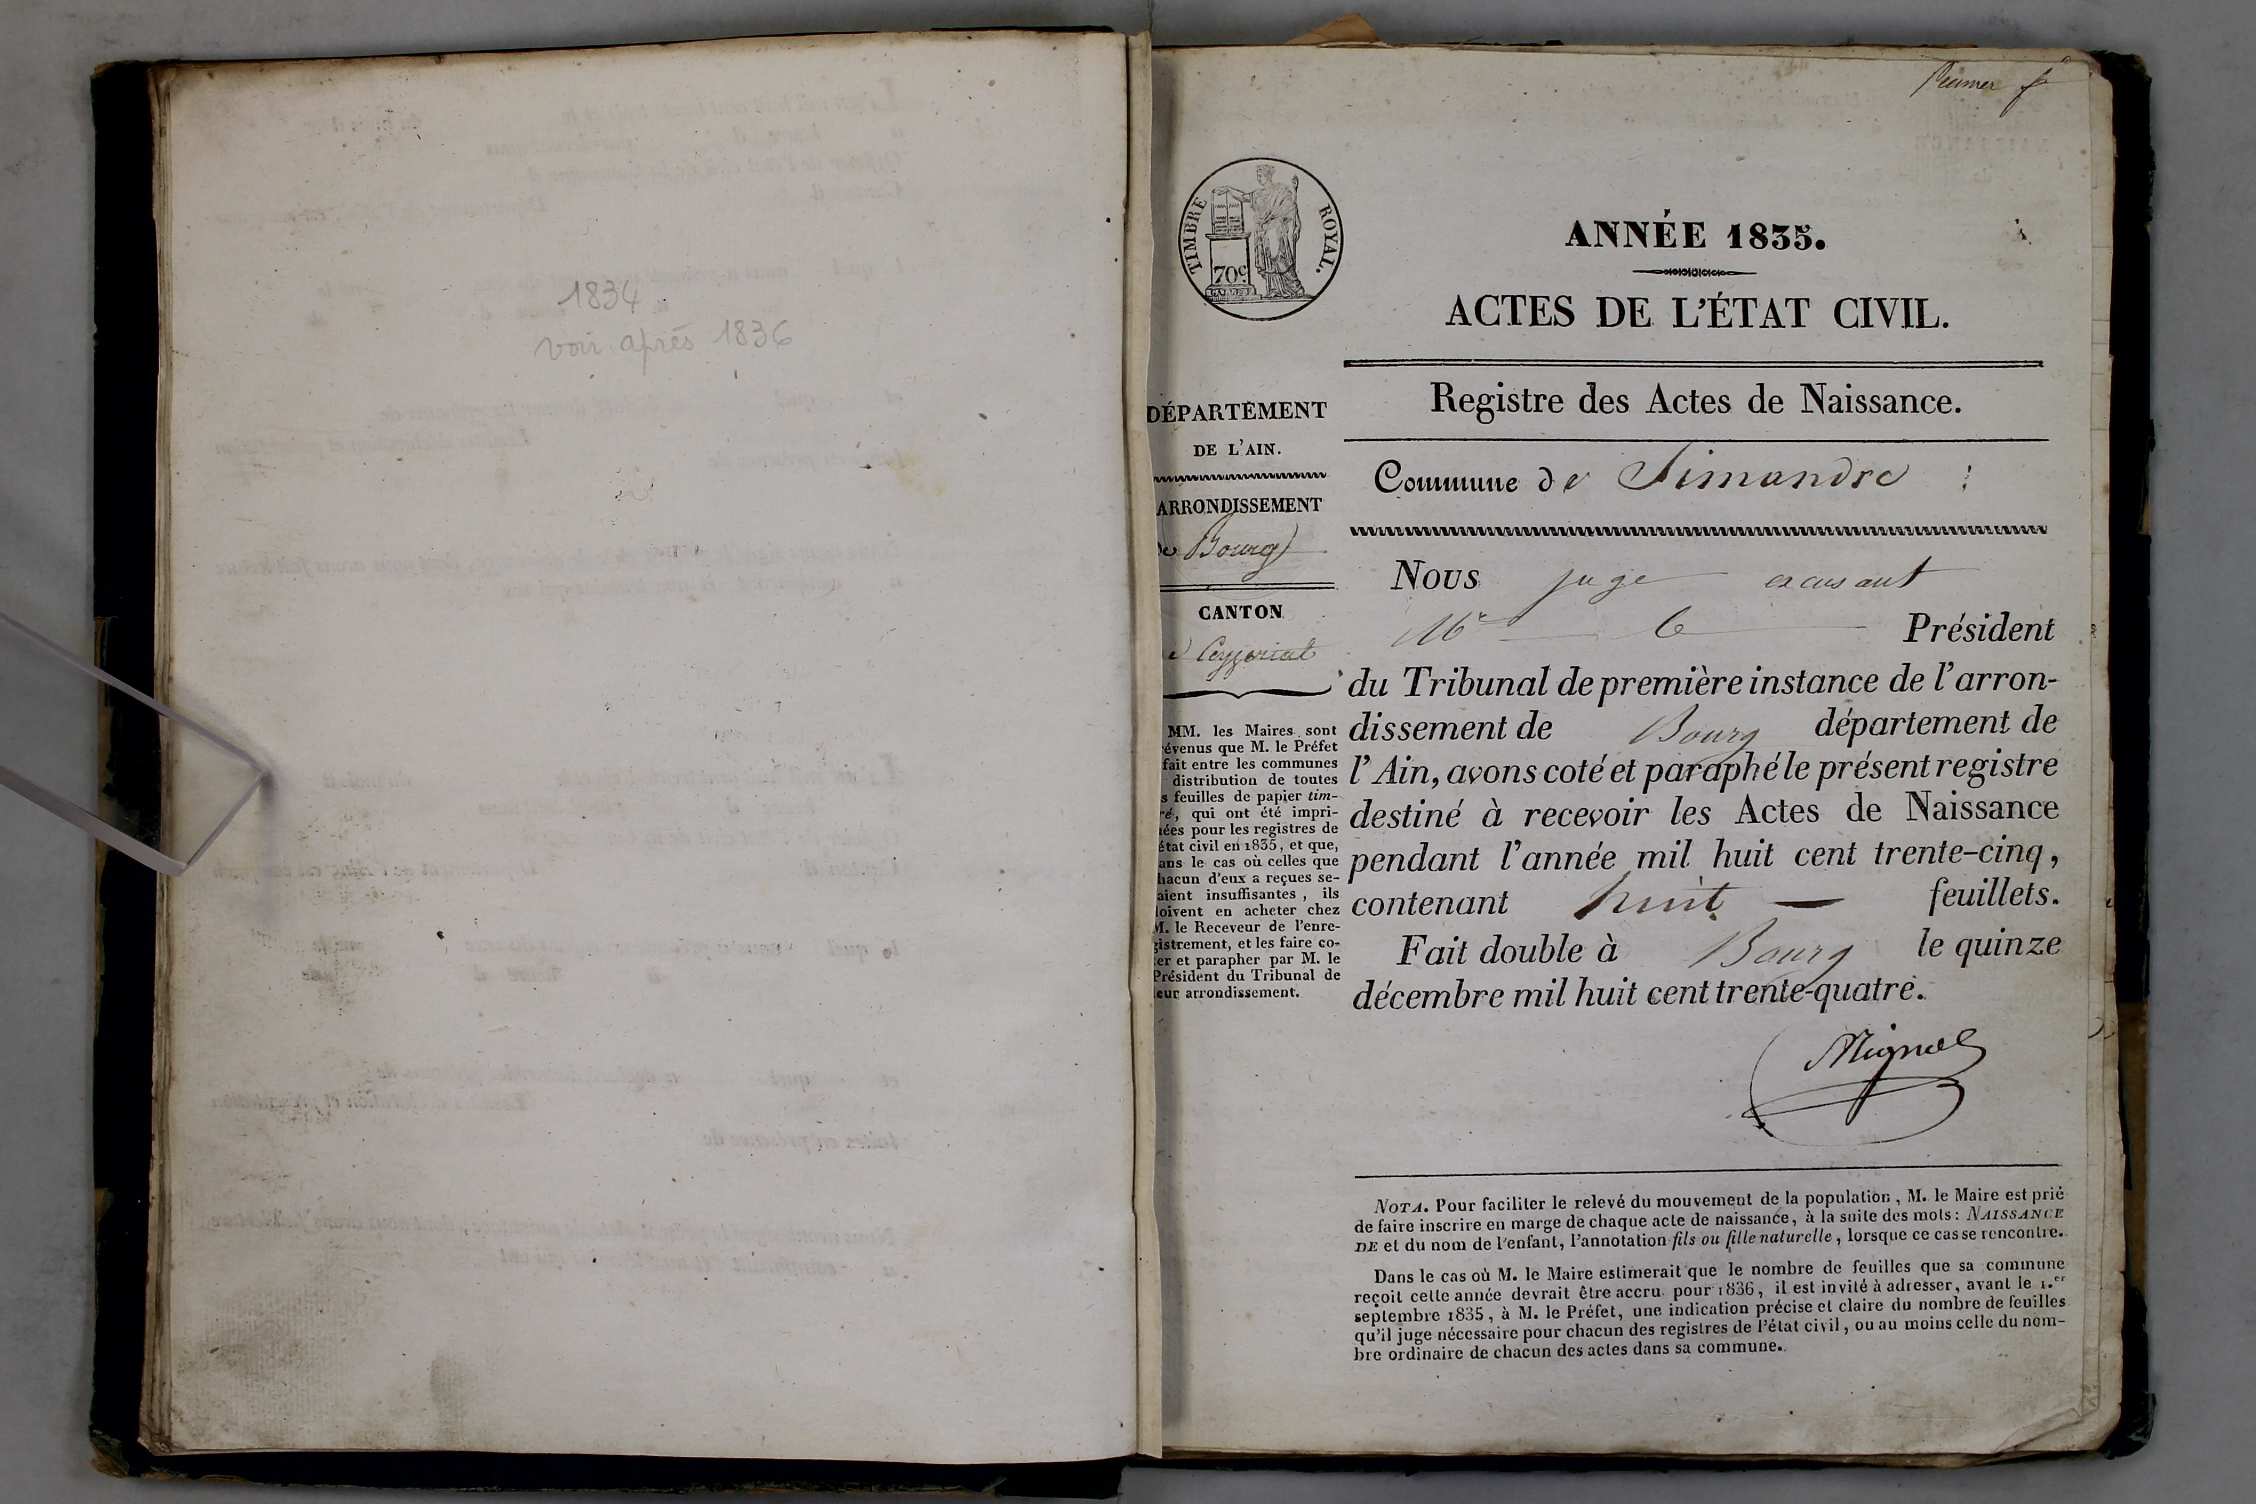 1834
voir après 1836
Premier f
TIMBRE ROYAL.
70c
ANNÉE 1835.
ACTES DE L'ÉTAT CIVIL.
Registre des Actes de Naissance.
Commune de Simandre
DÉPARTEMENT
DE L'AIN.
ARRONDISSEMENT
de Bourg
CANTON
Ceyzeriat
MM. les Maires sont
évenus que M. le Préfet
fait entre les communes
distribution de toutes
s feuilles de papier tim-
ré, qui ont été impri-
ées pour les registres de
état civil en 1835, et que,
ans le cas où celles que
hacun d'eux a reçues se-
aient insuffisantes, ils
oivent en acheter chez
M. le Receveur de l'enre-
gistrement, et les faire co-
er et parapher par M. le
Président du Tribunal de
eur arrondissement.
Nous juge excusant
Mr le Président
du Tribunal de première instance de l'arron-
dissement de Bourg département de
l'Ain, avons coté et paraphé le présent registre
destiné à recevoir les Actes de Naissance
pendant l'année mil huit cent trente-cinq,
contenant huit — feuillets.
Fait double à Bourg le quinze
décembre mil huit cent trente-quatre.
NOTA. Pour faciliter le relevé du mouvement de la population, M. le Maire est prié
de faire inscrire en marge de chaque acte de naissance, à la suite des mots: NAISSANCE
DE et du nom de l'enfant, l'annotation fils ou fille naturelle, lorsque ce cas se rencontre.
Dans le cas où M. le Maire estimerait que le nombre de feuilles que sa commune
reçoit cette année devrait être accru pour 1836, il est invité à adresser, avant le 1.er
septembre 1835, à M. le Préfet, une indication précise et claire du nombre de feuilles
qu'il juge nécessaire pour chacun des registres de l'état civil, ou au moins celle du nom-
bre ordinaire de chacun des actes dans sa commune.